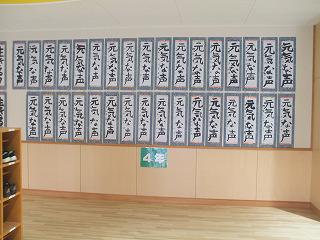 元気な声
元気な声
元気な声
元気な声
元気な声
元気な声
元気な声
元気な声
元気な声
元気な声
元気な声
元気な声
元気な声
元気な声
元気な声
元気な声
元気な声
元気な声
元気な声
元気な声
元気な声
元気な声
元気な声
元気な声
元気な声
元気な声
元気な声
元気な声
元気な声
元気な声
元気な声
元気な声
元気な声
4年